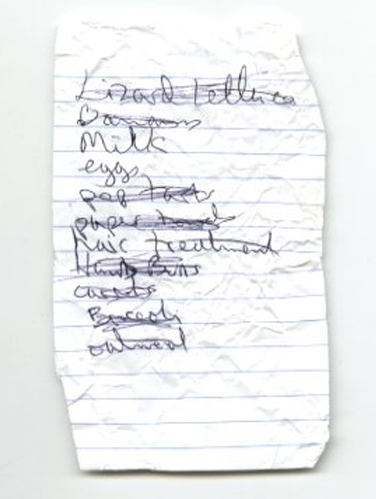 Lizard Lettuce
Bananas
Milk
eggs
pop tarts
paper towel
Hair treatment
Hand
carrots
Broccoli
oatmeal